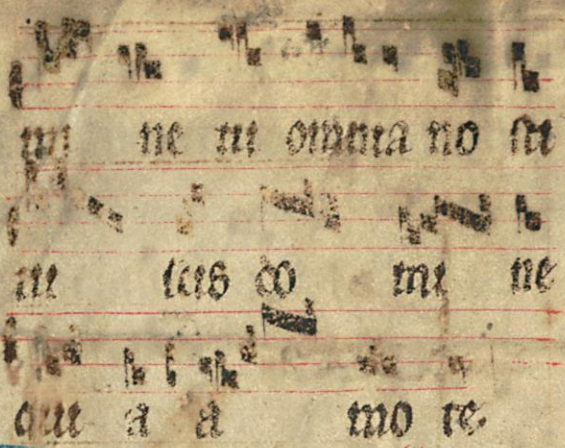 mi ne tu omnia no sti
tu scis do mi ne
qui a a mo te.